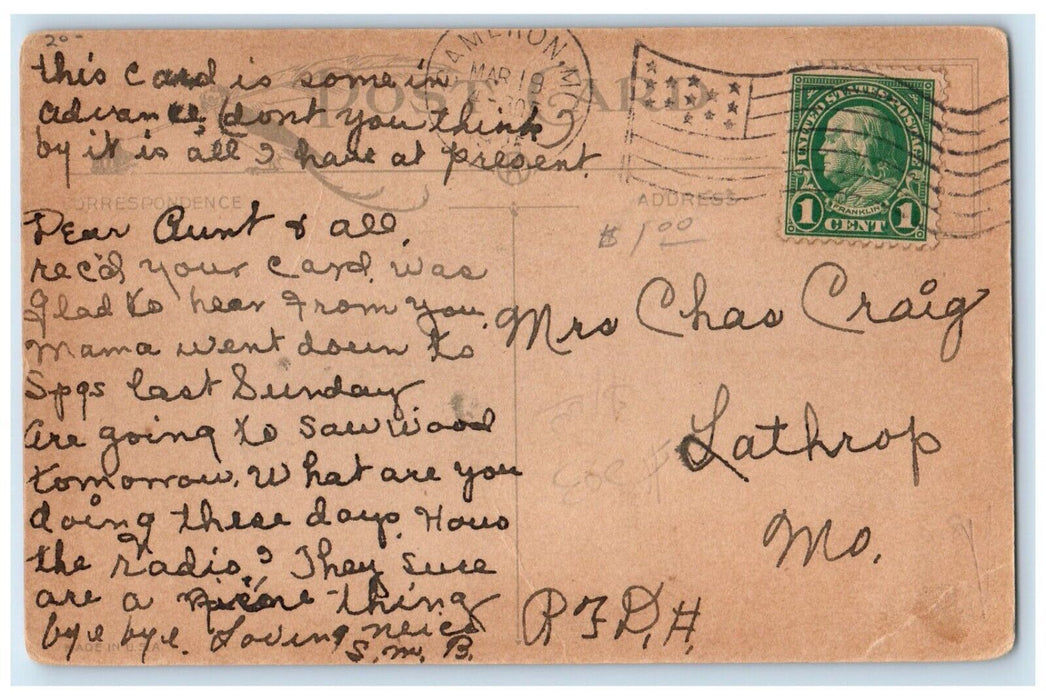 20-
this card is some in
advance, don't you think
by it is all I have at present.
CAMERON, MO
MAR 19
POST CARD
CORRESPONDENCE
ADDRESS
UNITED STATES POSTAGE
FRANKLIN
1 CENT 1
$1.00
Dear Aunt & all,
rec'd your card was
Glad to hear from you.
Mama went down to
Spgs last Sunday
are going to saw wood
tomorrow. What are you
doing these days. Hows
the radio? They sure
are a fine thing
bye bye. Loving neice
S. M. B.
Mrs Chas Craig
Lathrop
Mo.
R F D, 4
MADE IN U.S.A.